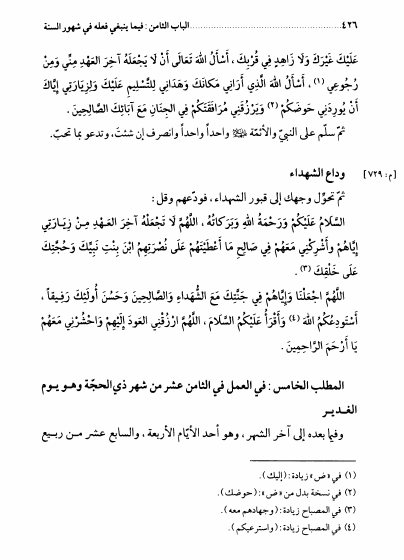 ٤٢٦ ........ الباب الثامن: فيما ينبغي فعله في شهور السنة
عَلَيْكَ غَيْرَكَ وَلَا زَاهِدٍ فِي قُرْبِكَ، أَسْأَلُ اللهَ تَعَالَى أَنْ لَا يَجْعَلَهُ آخِرَ العَهْدِ مِنِّي وَمِنْ
رُجُوعِي (١)، أَسْأَلُ اللهَ الَّذِي أَرَانِي مَكَانَكَ وَهَدَانِي لِلتَّسْلِيمِ عَلَيْكَ وَلِزِيَارَتِي إِيَّاكَ
أَنْ يُورِدَنِي حَوضَكُمْ (٢) وَيَرْزُقَنِي مُرَافَقَتَكُمْ فِي الجِنَانِ مَعَ آبَائِكَ الصَّالِحِينَ.
ثمّ سلّم على النبيّ والأئمّة ﷺ واحداً واحداً وانصرف إن شئتَ، وتدعو بما تحبّ.
وداع الشهداء
[م: ٧٢٩]
ثمّ تحوّل وجهك إلى قبور الشهداء، فودّعهم وقل:
السَّلَامُ عَلَيْكُمْ وَرَحْمَةُ اللهِ وَبَرَكَاتُهُ، اللَّهُمَّ لَا تَجْعَلْهُ آخِرَ العَهْدِ مِنْ زِيَارَتِي
إِيَّاهُمْ وَأَشْرِكْنِي مَعَهُمْ فِي صَالِحِ مَا أَعْطَيْتَهُمْ عَلَى نُصْرَتِهِمْ ابْنَ بِنْتِ نَبِيِّكَ وَحُجَّتِكَ
عَلَى خَلْقِكَ (٣).
اللَّهُمَّ اجْعَلْنَا وَإِيَّاهُمْ فِي جَنَّتِكَ مَعَ الشُّهَدَاءِ وَالصَّالِحِينَ وَحَسُنَ أُولَئِكَ رَفِيقاً،
أَسْتَودِعُكُمُ اللهَ (٤) وَأَقْرَأُ عَلَيْكُمُ السَّلَامَ، اللَّهُمَّ ارْزُقْنِي العَودَ إِلَيْهِمْ وَاحْشُرْنِي مَعَهُمْ
يَا أَرْحَمَ الرَّاحِمِينَ.
المطلب الخامس: في العمل في الثامن عشر من شهر ذي الحجّة وهو يوم
الغدير
وفيما بعده إلى آخر الشهر، وهو أحد الأيّام الأربعة، والسابع عشر من ربيع
(١) في «ض» زيادة: (إليك).
(٢) في نسخة بدل من «ض»: (حوضك).
(٣) في المصباح زيادة: (وجهادهم معه).
(٤) في المصباح زيادة: (واسترعيكم).